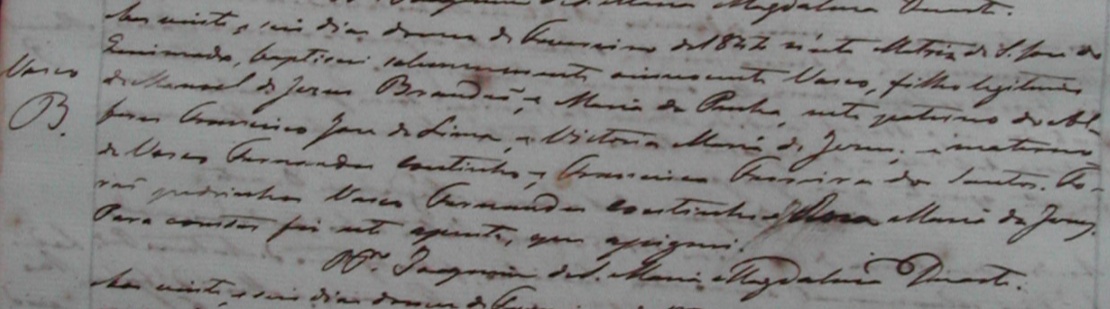 Joaquim de S. Maria Magdalena Duarte.
Aos vinte, e seis dias do mez de Fevereiro de 1842 n'esta Matriz de S. Jose do
Vasco
B.
Queimado, baptisei solemnemente ao innocente Vasco, filho legitimo
de Manoel de Jezus Brandaõ, e Maria da Penha, neto paterno do Al-
feres Francisco Jose de Lima, e Victoria Maria de Jezus, e materno
de Vasco Fernandes Coutinho, e Francisca Ferreira dos Santos. Fo-
raõ padrinhos Vasco Fernandes Coutinho e Rosa Maria de Jezus.
Para constar fiz este assento, que assignei.
Joaquim de S. Maria Magdalena Duarte.
Aos vinte, e seis dias do mez de